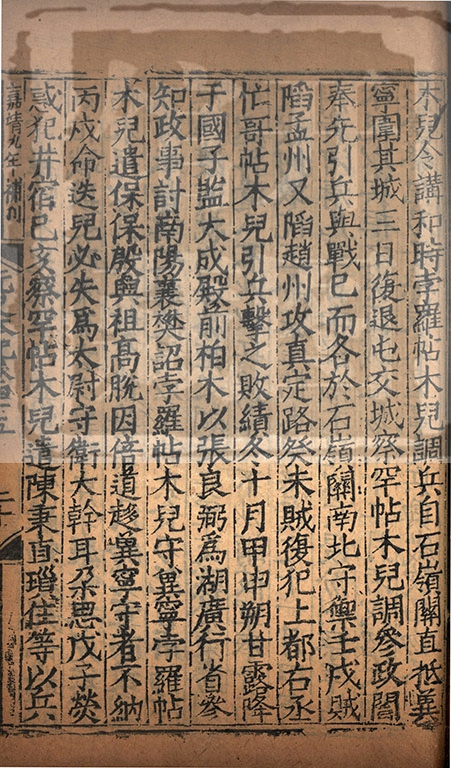 木兒令講和時孛羅帖木兒調兵自石嶺關直抵兾
寧圍其城三日復退屯交城察罕帖木兒調參政閻
奉先引兵與戰已而各於石嶺關南北守禦壬戌賊
陷孟州又陷趙州攻真定路癸未賊復犯上都右丞
忙哥帖木兒引兵擊之敗績冬十月甲申朔甘露降
于國子監大成殿前柏木以張良弼為湖廣行省參
知政事討南陽襄樊詔孛羅帖木兒守兾寧孛羅帖
木兒遣保保殷興祖高脫因倍道趍兾寧守者不納
丙戌命迭兒必失為太尉守衛大斡耳朵思戊子熒
惑犯井宿己亥察罕帖木兒遣陳秉直瑣住等以兵
嘉靖九年補刊